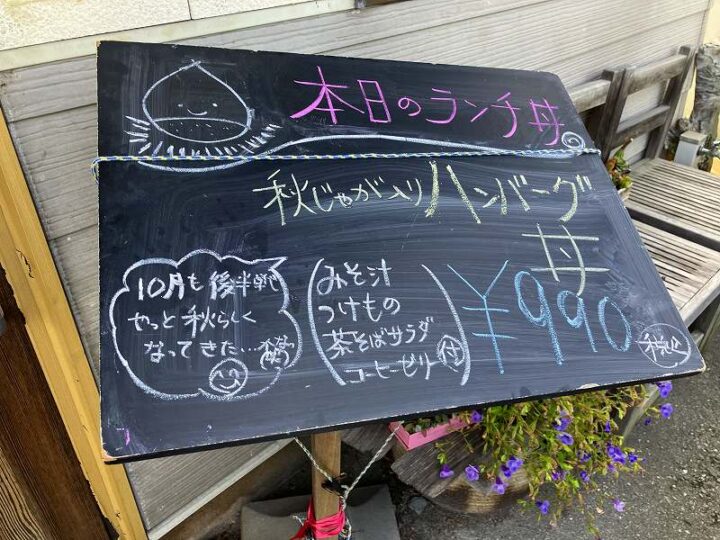 本日のランチ丼
秋じゃが入りハンバーグ
丼
10月も後半戦で
やっと秋らしく
なってきた…
みそ汁
つけもの
茶そばサラダ
コーヒーゼリー 付
¥990
税込